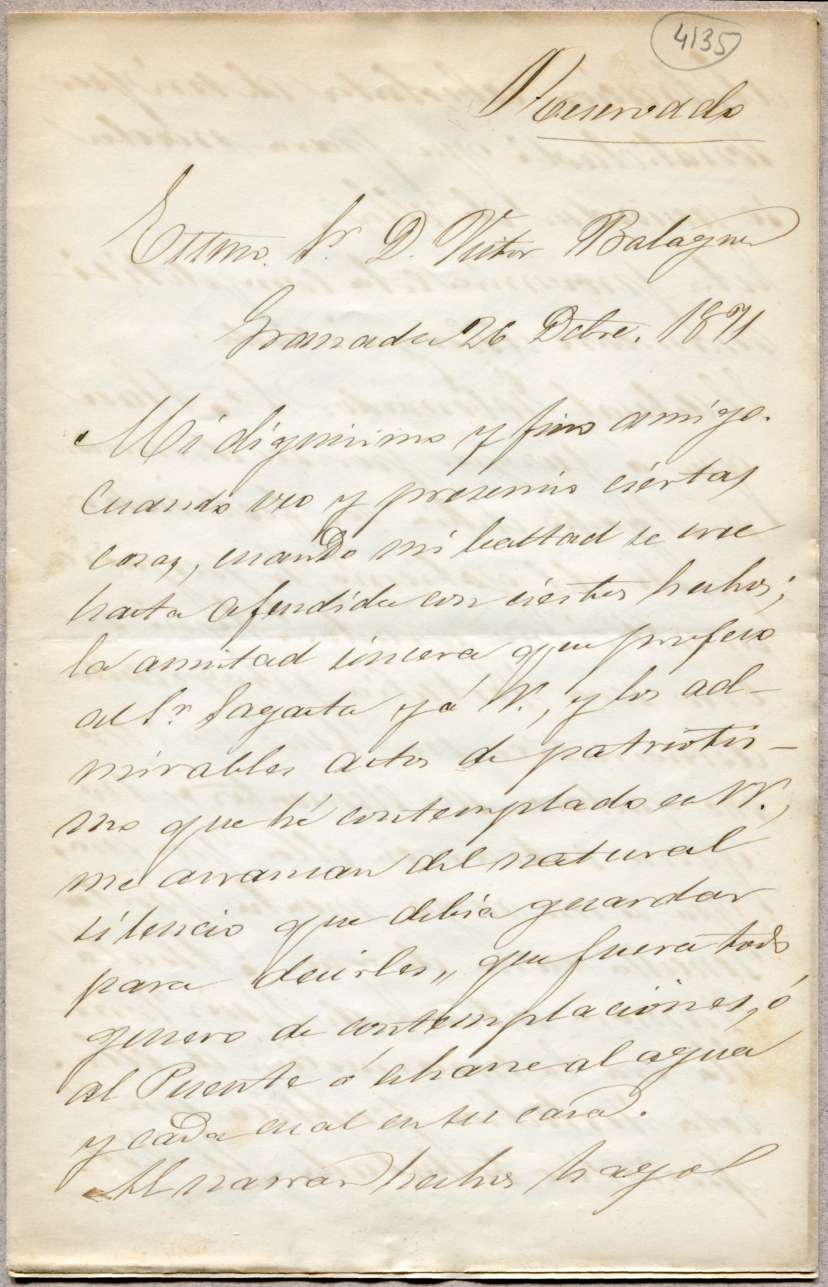 4135
Reservado
Exmo. Sr. D. Victor Balaguer
Granada 26 Dbre. 1871
Mi dignisimo y fino amigo.
Cuando veo y presencio ciertas
cosas, cuando mi lealtad se cree
hasta ofendida con ciertos hechos;
la amistad sincera que profeso
al Sr. Sagasta y á V., y los ad-
mirables actos de patriotis-
mo que hé contemplado en V.,
me arrancan del natural
silencio que debia guardar
para decirles,, que fuera todo
genero de contemplaciones, ó
al Puente ó echarse al agua
y cada cual en su casa.
Al narrar hechos hago